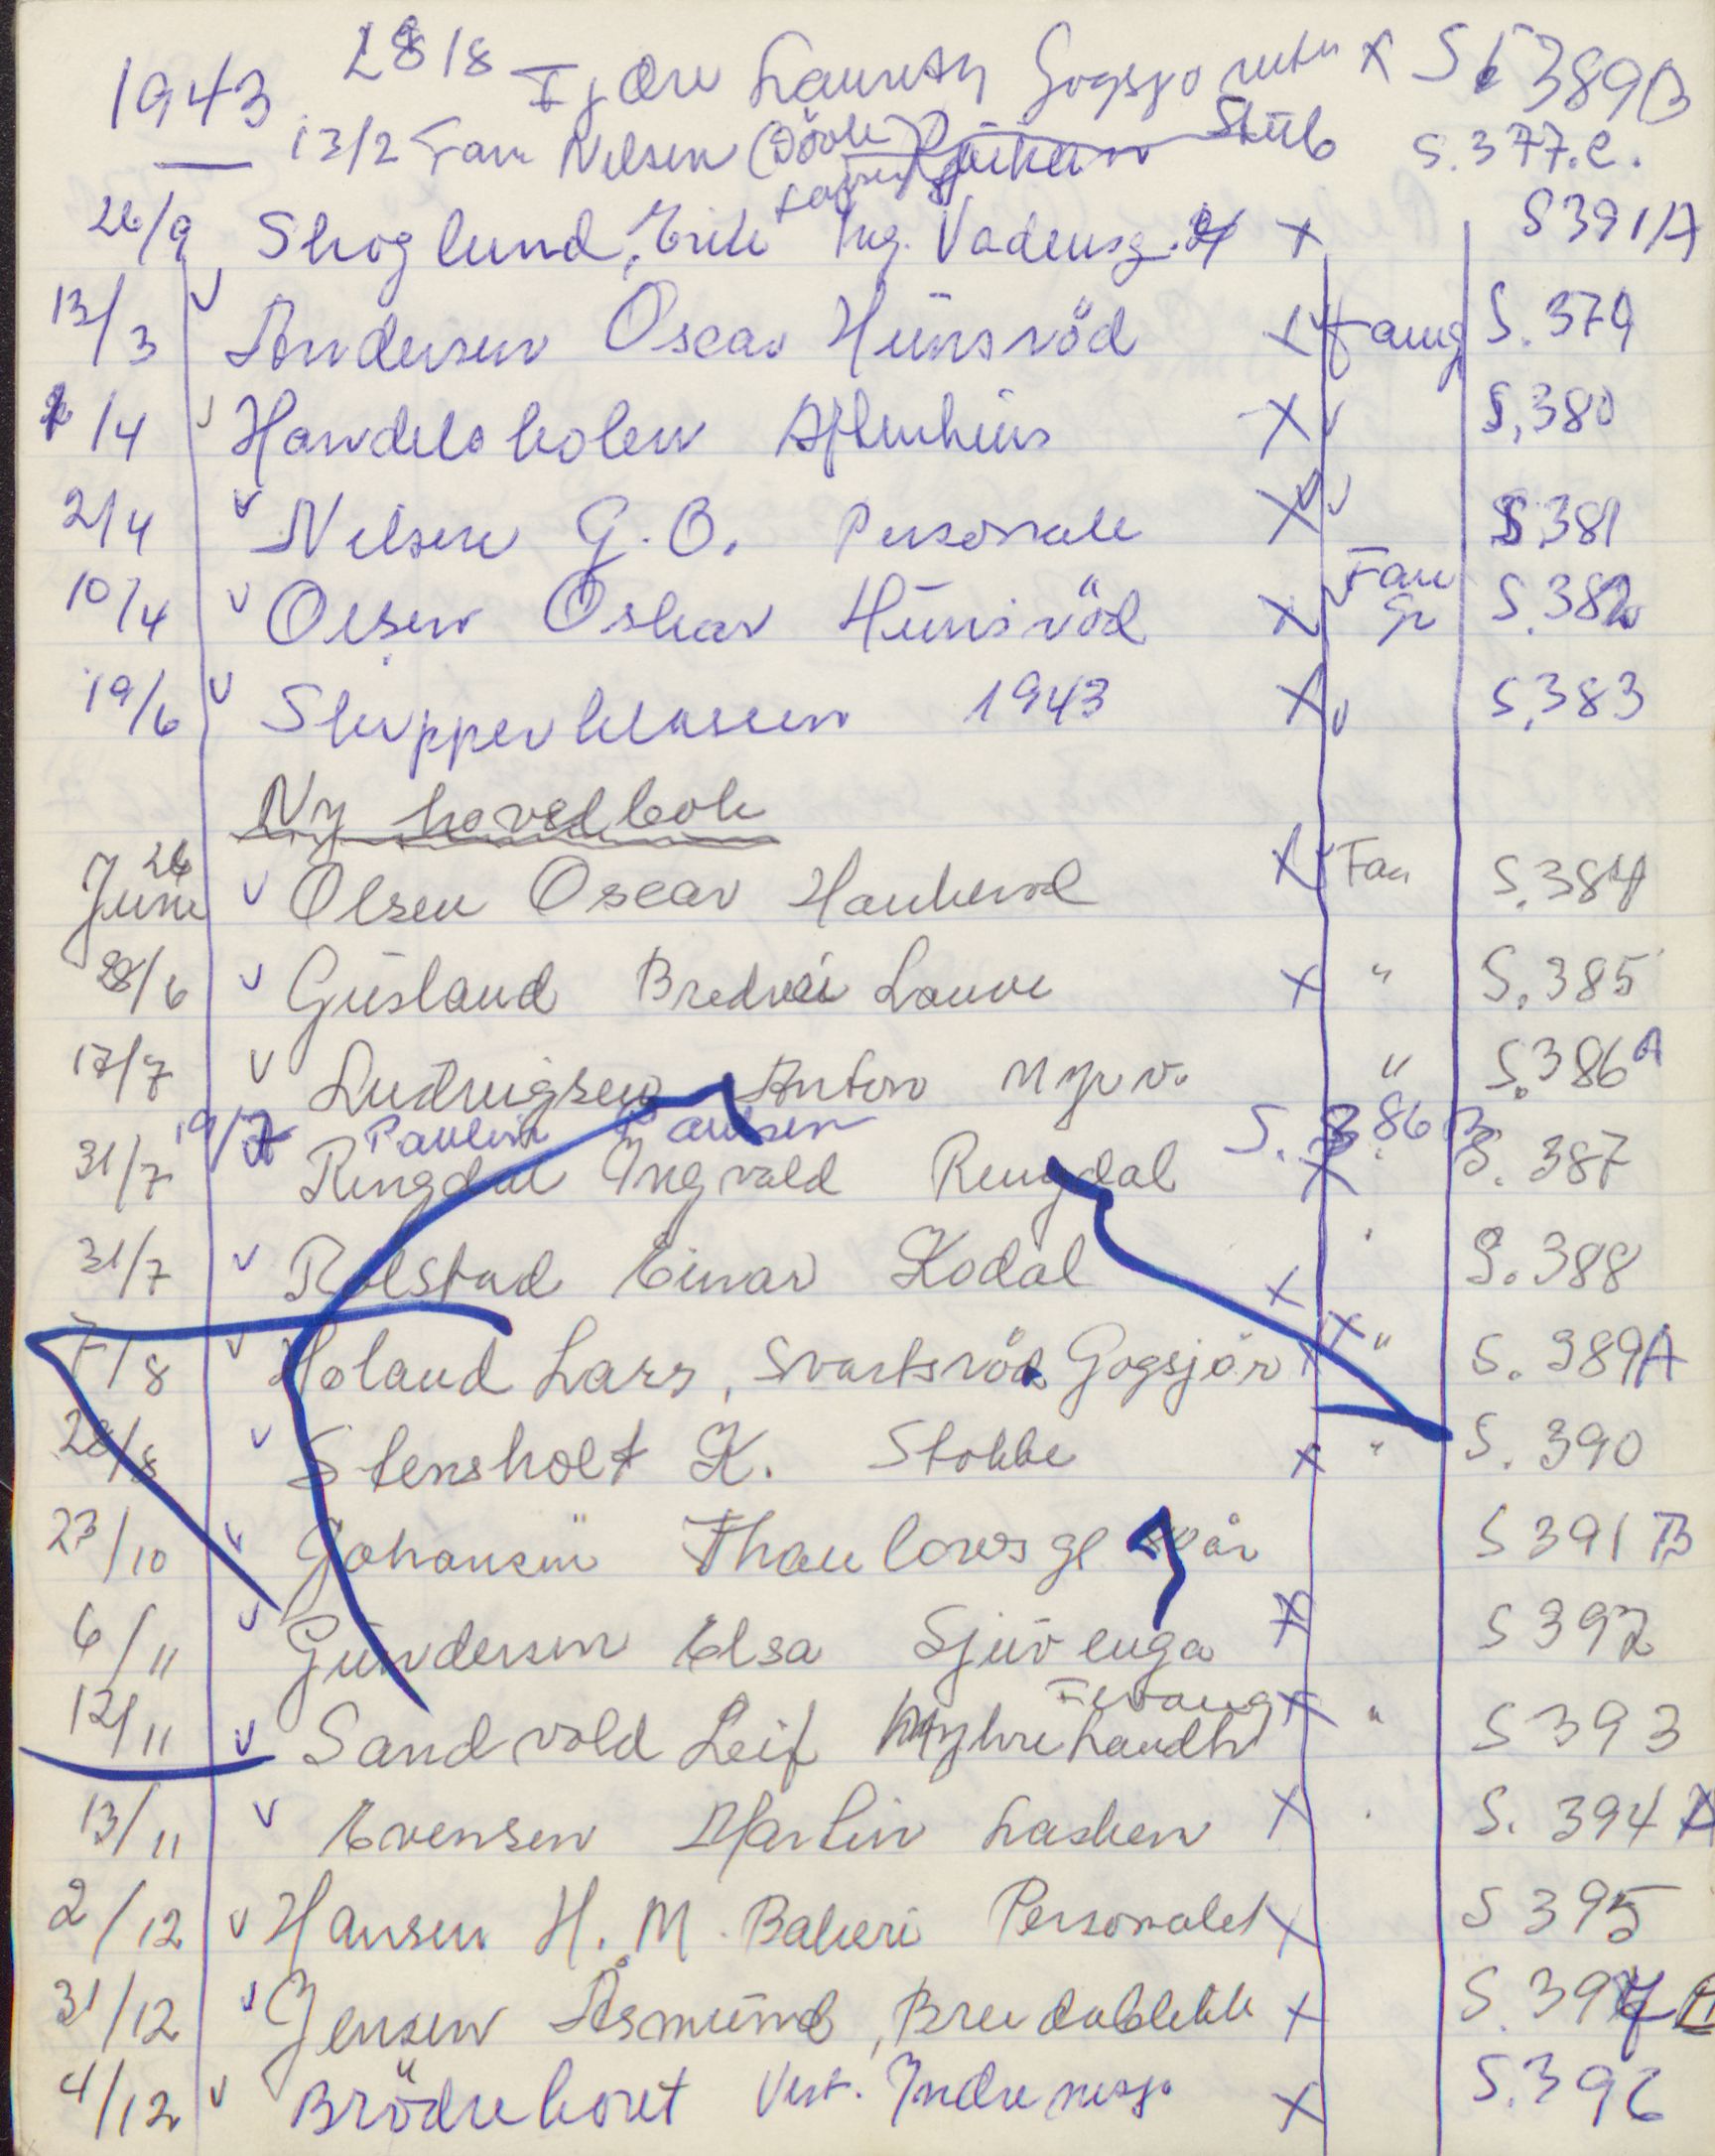 1943 28/8 Fjære Lauretz Gogsjø x S 389B
13/2 Fam Nilsen S.377.C.
26/9 Skoglund, Erik Ing. Vadensg. x S391A
13/3 v Andersen Oscar Hünsröd x Fang S.379
/4 v Handelsskolen x v S.380
2/4 v Nilsen G.O. Personale x v S.381
10/4 v Olsen Oskar Hünsröd x Fam Gr S.382
19/6 v Skipperklassen 1943 x v S.383
Ny hovedbok
26 Juni v Olsen Oscar Haukerød x Fan S.384
28/6 v Güsland Bredvei Lauve x " S.385
17/7 v Ludvigsen Anton " S.386A
19/7 Paulin Paulsen S. 386 B
31/7 Ringdal Ingvald Ringdal x S. 387
31/7 v Rolstad Einar Kodal x S. 388
7/8 v Holand Lars, Svartsröd Gogsjör x " S. 389A
28/8 v Stensholt K. Stokke x " S. 390
23/10 v Johansen Thaulowsgt S 391 B
6/11 v Gündersen Elsa Sjüvenga x S 392
Fevang
12/11 v Sandvold Leif x " S 393
13/11 v Evensen Martin Lasken x S. 394 A
2/12 v Hansen H.M. Bakeri Personalet x S 395
31/12 v Jensen Åsmünd, Breidablikk x S.397
4/12 v Brödreboret Vest. Indremisj. x S.396